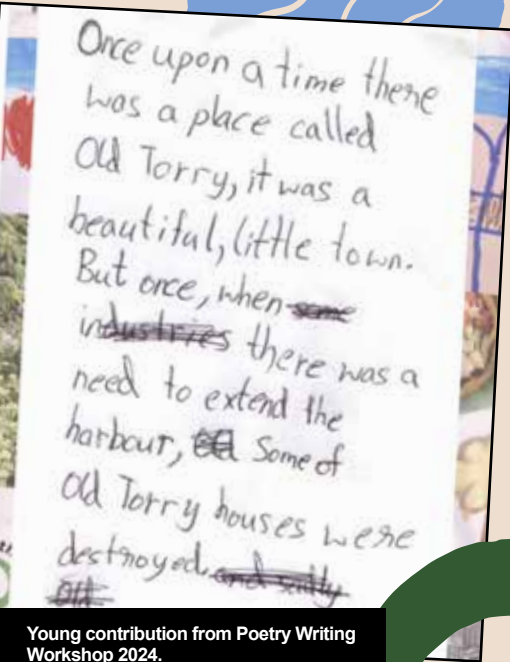 Once upon a time there
was a place called
Old Torry, it was a
beautiful, little town.
But once, when
industries there was a
need to extend the
harbour, Some of
Old Torry houses were
destroyed.
Young contribution from Poetry Writing
Workshop 2024.